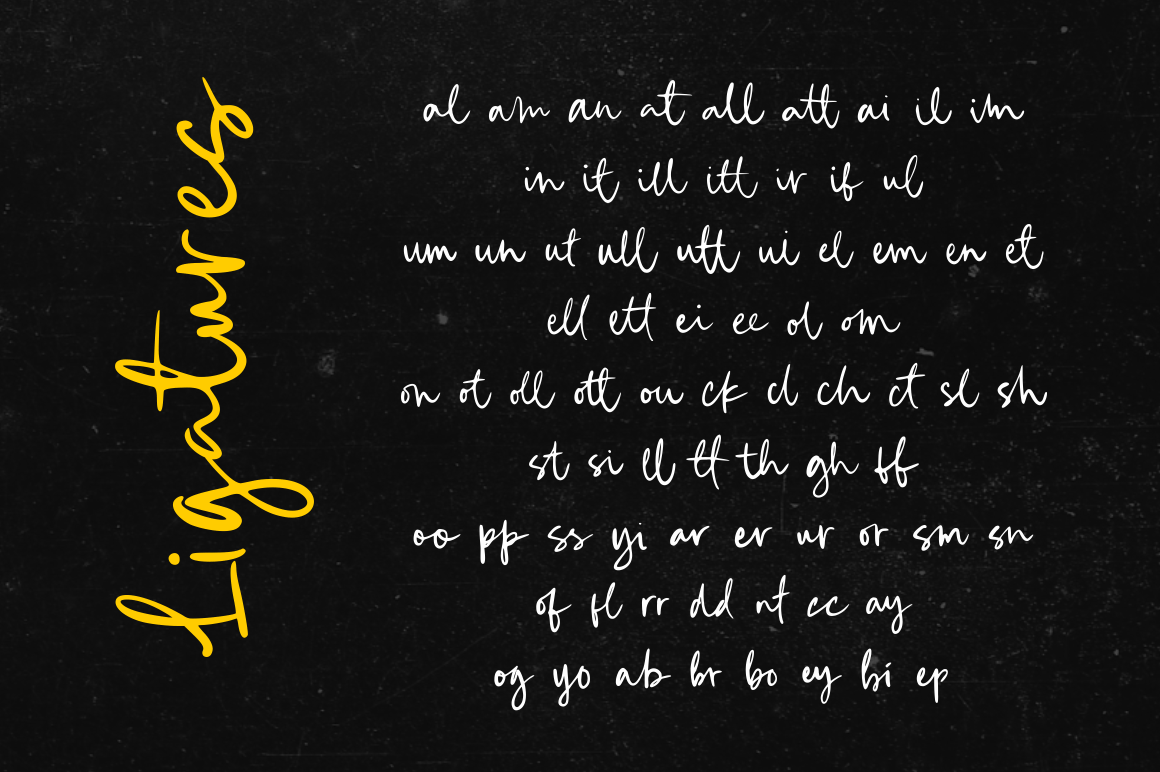 Ligatures
al am an at all att ai il im
in it ill itt ir if ul
um un ut ull utt ui el em en et
ell ett ei ee ol om
on ot oll ott ou ck cl ch ct sl sh
st si ll tt th gh ff
oo pp ss yi ar er ur or sm sn
of fl rr dd nt cc ay
og yo ab br bo ey bi ep